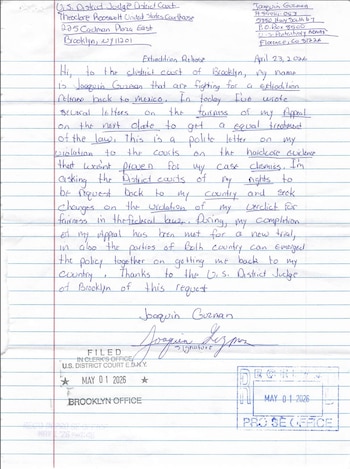 U.S. District Judge District Court
Theodore Roosevelt United States Courthouse
225 Cadman Plaza East
Brooklyn, NY 11201
Joaquin Guzman
# 89914-053
5880 Hwy 67
P.O. Box 8500
U.S. Penitentiary
Florence, Co 81226
Extradition Release
April 23, 2026
Hi, to the district court of Brooklyn, my name
is Joaquin Guzman that are fighting for a extradition
release back to mexico. In today I've wrote
several letters on the fairness of my Appeal
on the next date to get a equal treatment
of the law. This is a polite letter on my
violation to the courts on the hardcore evidence
that wasn't proven for my case claims. I'm
asking the District courts of my rights to
be request back to my country and seek
changes on the violation of my verdict for
fairness in the federal law. During, my completion
of my Appeal has been met for a new trial,
in also the parties of Both country can
the policy together on getting me back to my
country. Thanks to the U.S. District Judge
of Brooklyn of this request
Joaquin Guzman
Joaquin Guzman
Signature
FILED
IN CLERK'S OFFICE
U.S. DISTRICT COURT E.D.N.Y.
★ MAY 01 2026 ★
BROOKLYN OFFICE
MAY 01 2026
PRO SE OFFICE